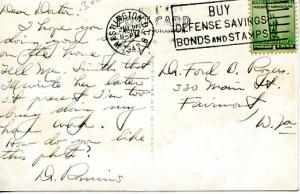 Dear Doctor:
I hope you
doing
on the
Tell Mrs. Smith that
I write her later
at present I'm too
busy doing my
work.
How do you like
this photo?
WASHINGTON
1941
CARD
BUY
DEFENSE SAVINGS
BONDS AND STAMPS
Dr. Ford B. Rogers.
330 Main St.
Fairmont
W. Va